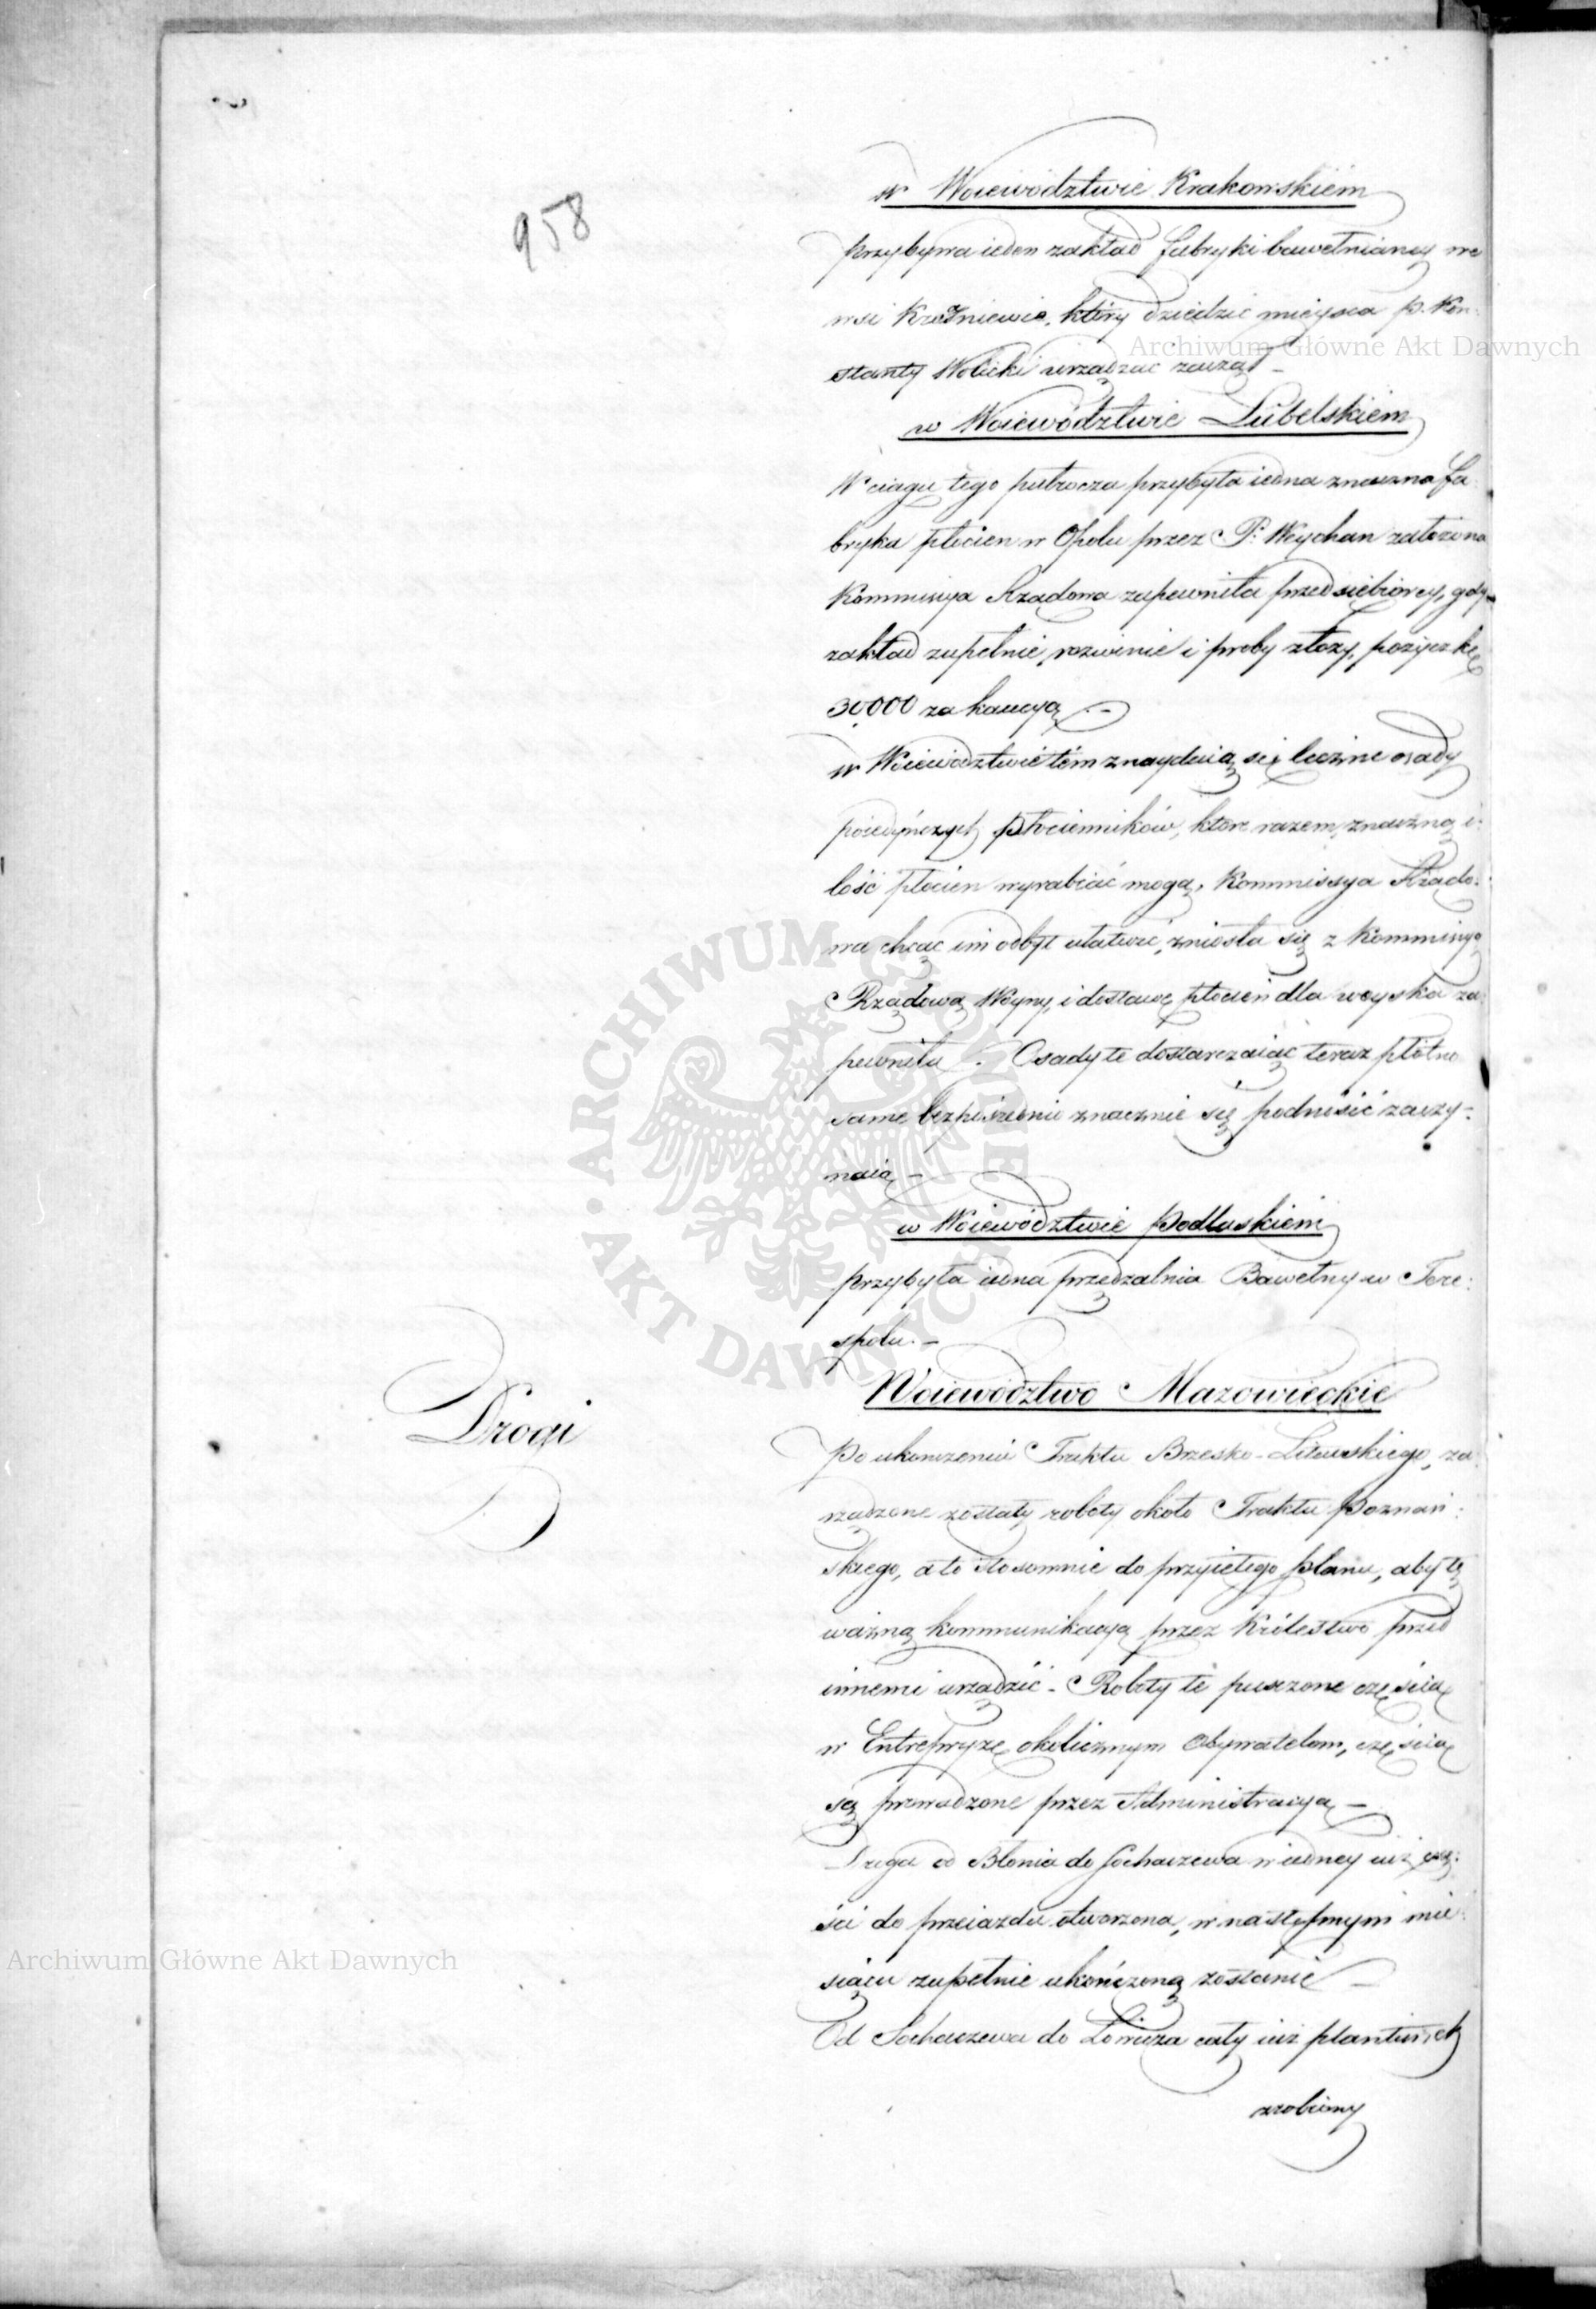 958
w Woiewództwie Krakowskiém
przybywa ieden zakład fabryki bawełnianey we
wsi Kreżniewie, który dziedzic mieysca P. Kon:
stanty Wolicki urządzać zaczął –
w Woiewództwie Lubelskiém
W ciągu tego półrocza przybyła iedna znaczna fa:
bryka płócien w Opolu przez P. Weychan założona
Kommissya Rządowa zapewniła przedsiębiorcy, gdy
zakład zupełnie rozwinie i proby złoży, pożyczkę
30,000 za kaucyą. –
w Woiewództwie tém znayduią się liczne osady
poiedyńczych Płócienników, które razem znaczną i:
lość płócien wyrabiać mogą, Kommissya Rządo:
wa chcąc im odbyt ułatwić, zniosła się z Kommissyą
Rządową Woyny, i dostawę płócien dla woyska za:
pewniła. Osady te dostarczaiąc teraz płótno
same bezpośrednio znacznie się podnosić zaczy:
naią –
w Woiewództwie Podlaskiém
przybyła iedna przędzalnia Bawełny w Tere:
spolu. –
Drogi
Woiewództwo Mazowieckie
Po ukończeniu Traktu Brzesko-Litewskiego, za:
rządzone zostały roboty około Traktu Poznań:
skiego, a to stosownie do przyiętego planu, aby tę
ważną kommunikacyą przez Królestwo przed
innemi urządzić – Roboty te puszczone częścią
w Entrepryzę okolicznym Obywatelom, częścią
są prowadzone przez Administracyą –
Droga od Błonia do Sochaczewa w iedney iuż czę:
ści do przeiazdu otworzona, w następnym mie:
siącu zupełnie ukończoną zostanie –
Od Sochaczewa do Łowicza cały iuż plant
zrobiony
Archiwum Główne Akt Dawnych
Archiwum Główne Akt Dawnych
ARCHIWUM GŁÓWNE AKT DAWNYCH